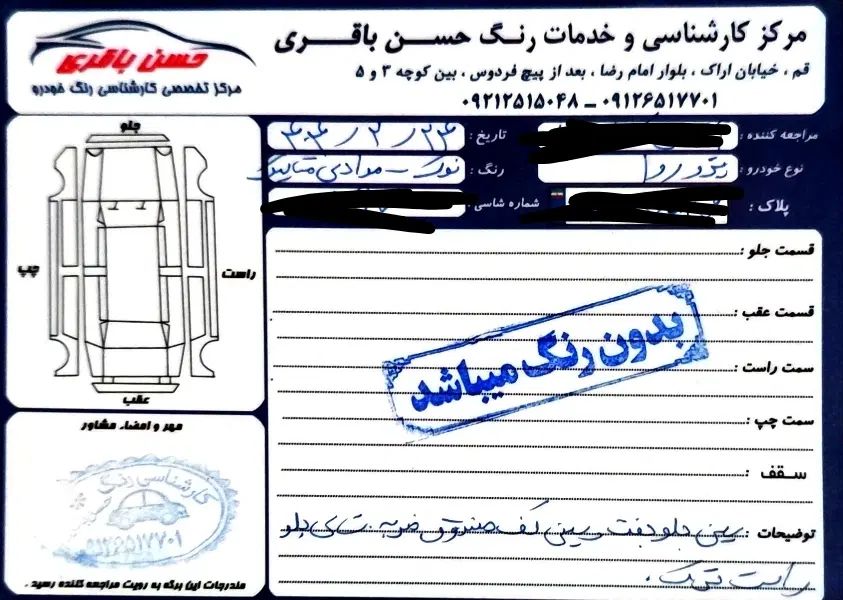 حسن باقری
مرکز تخصصی کارشناسی رنگ خودرو
مرکز کارشناسی و خدمات رنگ حسن باقری
قم ، خیابان اراک ، بلوار امام رضا ، بعد از پیچ فردوس ، بین کوچه ۳ و ۵
۰۹۱۲۶۵۱۷۷۰۱ ــ ۰۹۲۱۲۵۱۵۰۴۸
مراجعه کننده :
تاریخ : ۰۴/۲/۲۴
نوع خودرو : پژو روا
رنگ : نوک – مدادی متالیک
پلاک :
شماره شاسی :
جلو
راست
چپ
عقب
قسمت جلو :
قسمت عقب :
سمت راست :
سمت چپ :
سقف :
بدون رنگ میباشد
توضیحات : سینی جلو جفت و سینی کف صندوق ضربه . شاسی جلو
راست ترک .
مهر و امضاء مشاور
کارشناسی رنگ
۰۹۱۲۶۵۱۷۷۰۱
مندرجات این برگه به رویت مراجعه کننده رسید .